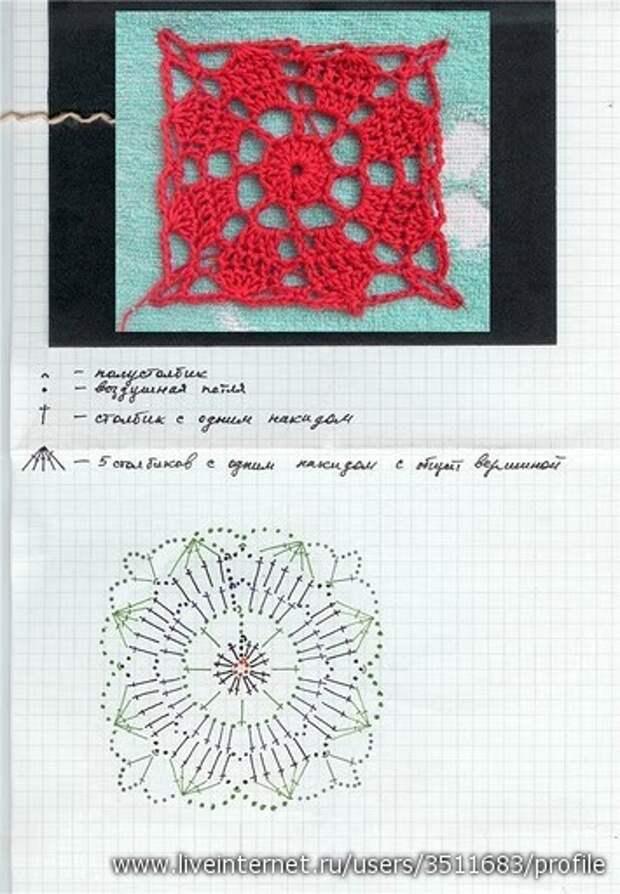 – полустолбик
– воздушная петля
– столбик с одним накидом
– 5 столбиков с одним накидом с общей вершиной
www.liveinternet.ru/users/3511683/profile